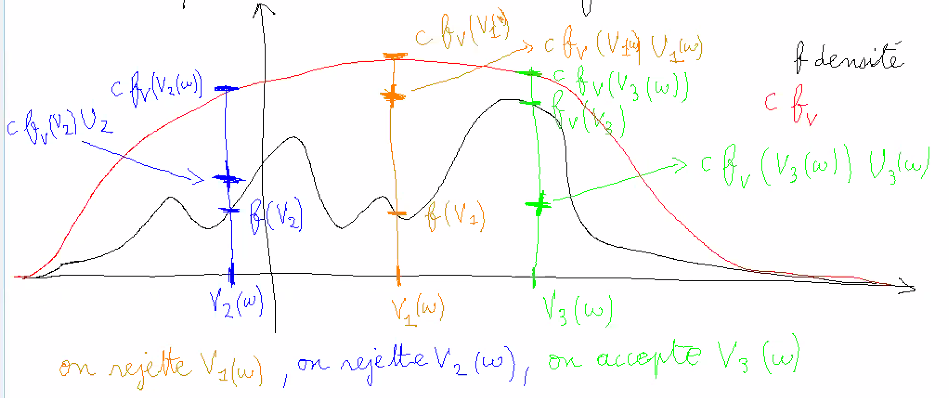 c f_V(V_1)
c f_V(V_1(ω)) U_1(ω)
f densité
c f_V(V_2(ω))
c f_V(V_3(ω))
c f_V
c f_V(V_2) U_2
f_V(V_3)
c f_V(V_3(ω)) U_3(ω)
f(V_2)
f(V_1)
V_2(ω)
V_1(ω)
V_3(ω)
on rejette V_1(ω), on rejette V_2(ω), on accepte V_3(ω)